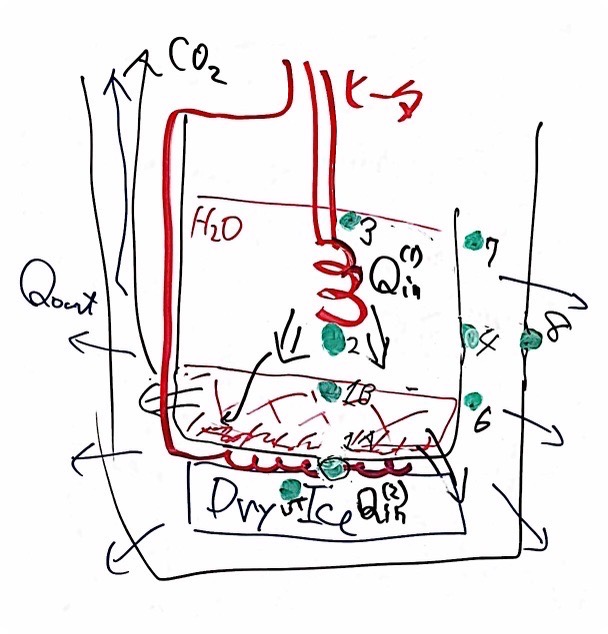 CO2
H2O
3
Qin(1)
7
Qout
2
4
8
1B
6
1A
5
Dry Ice
Qin(2)